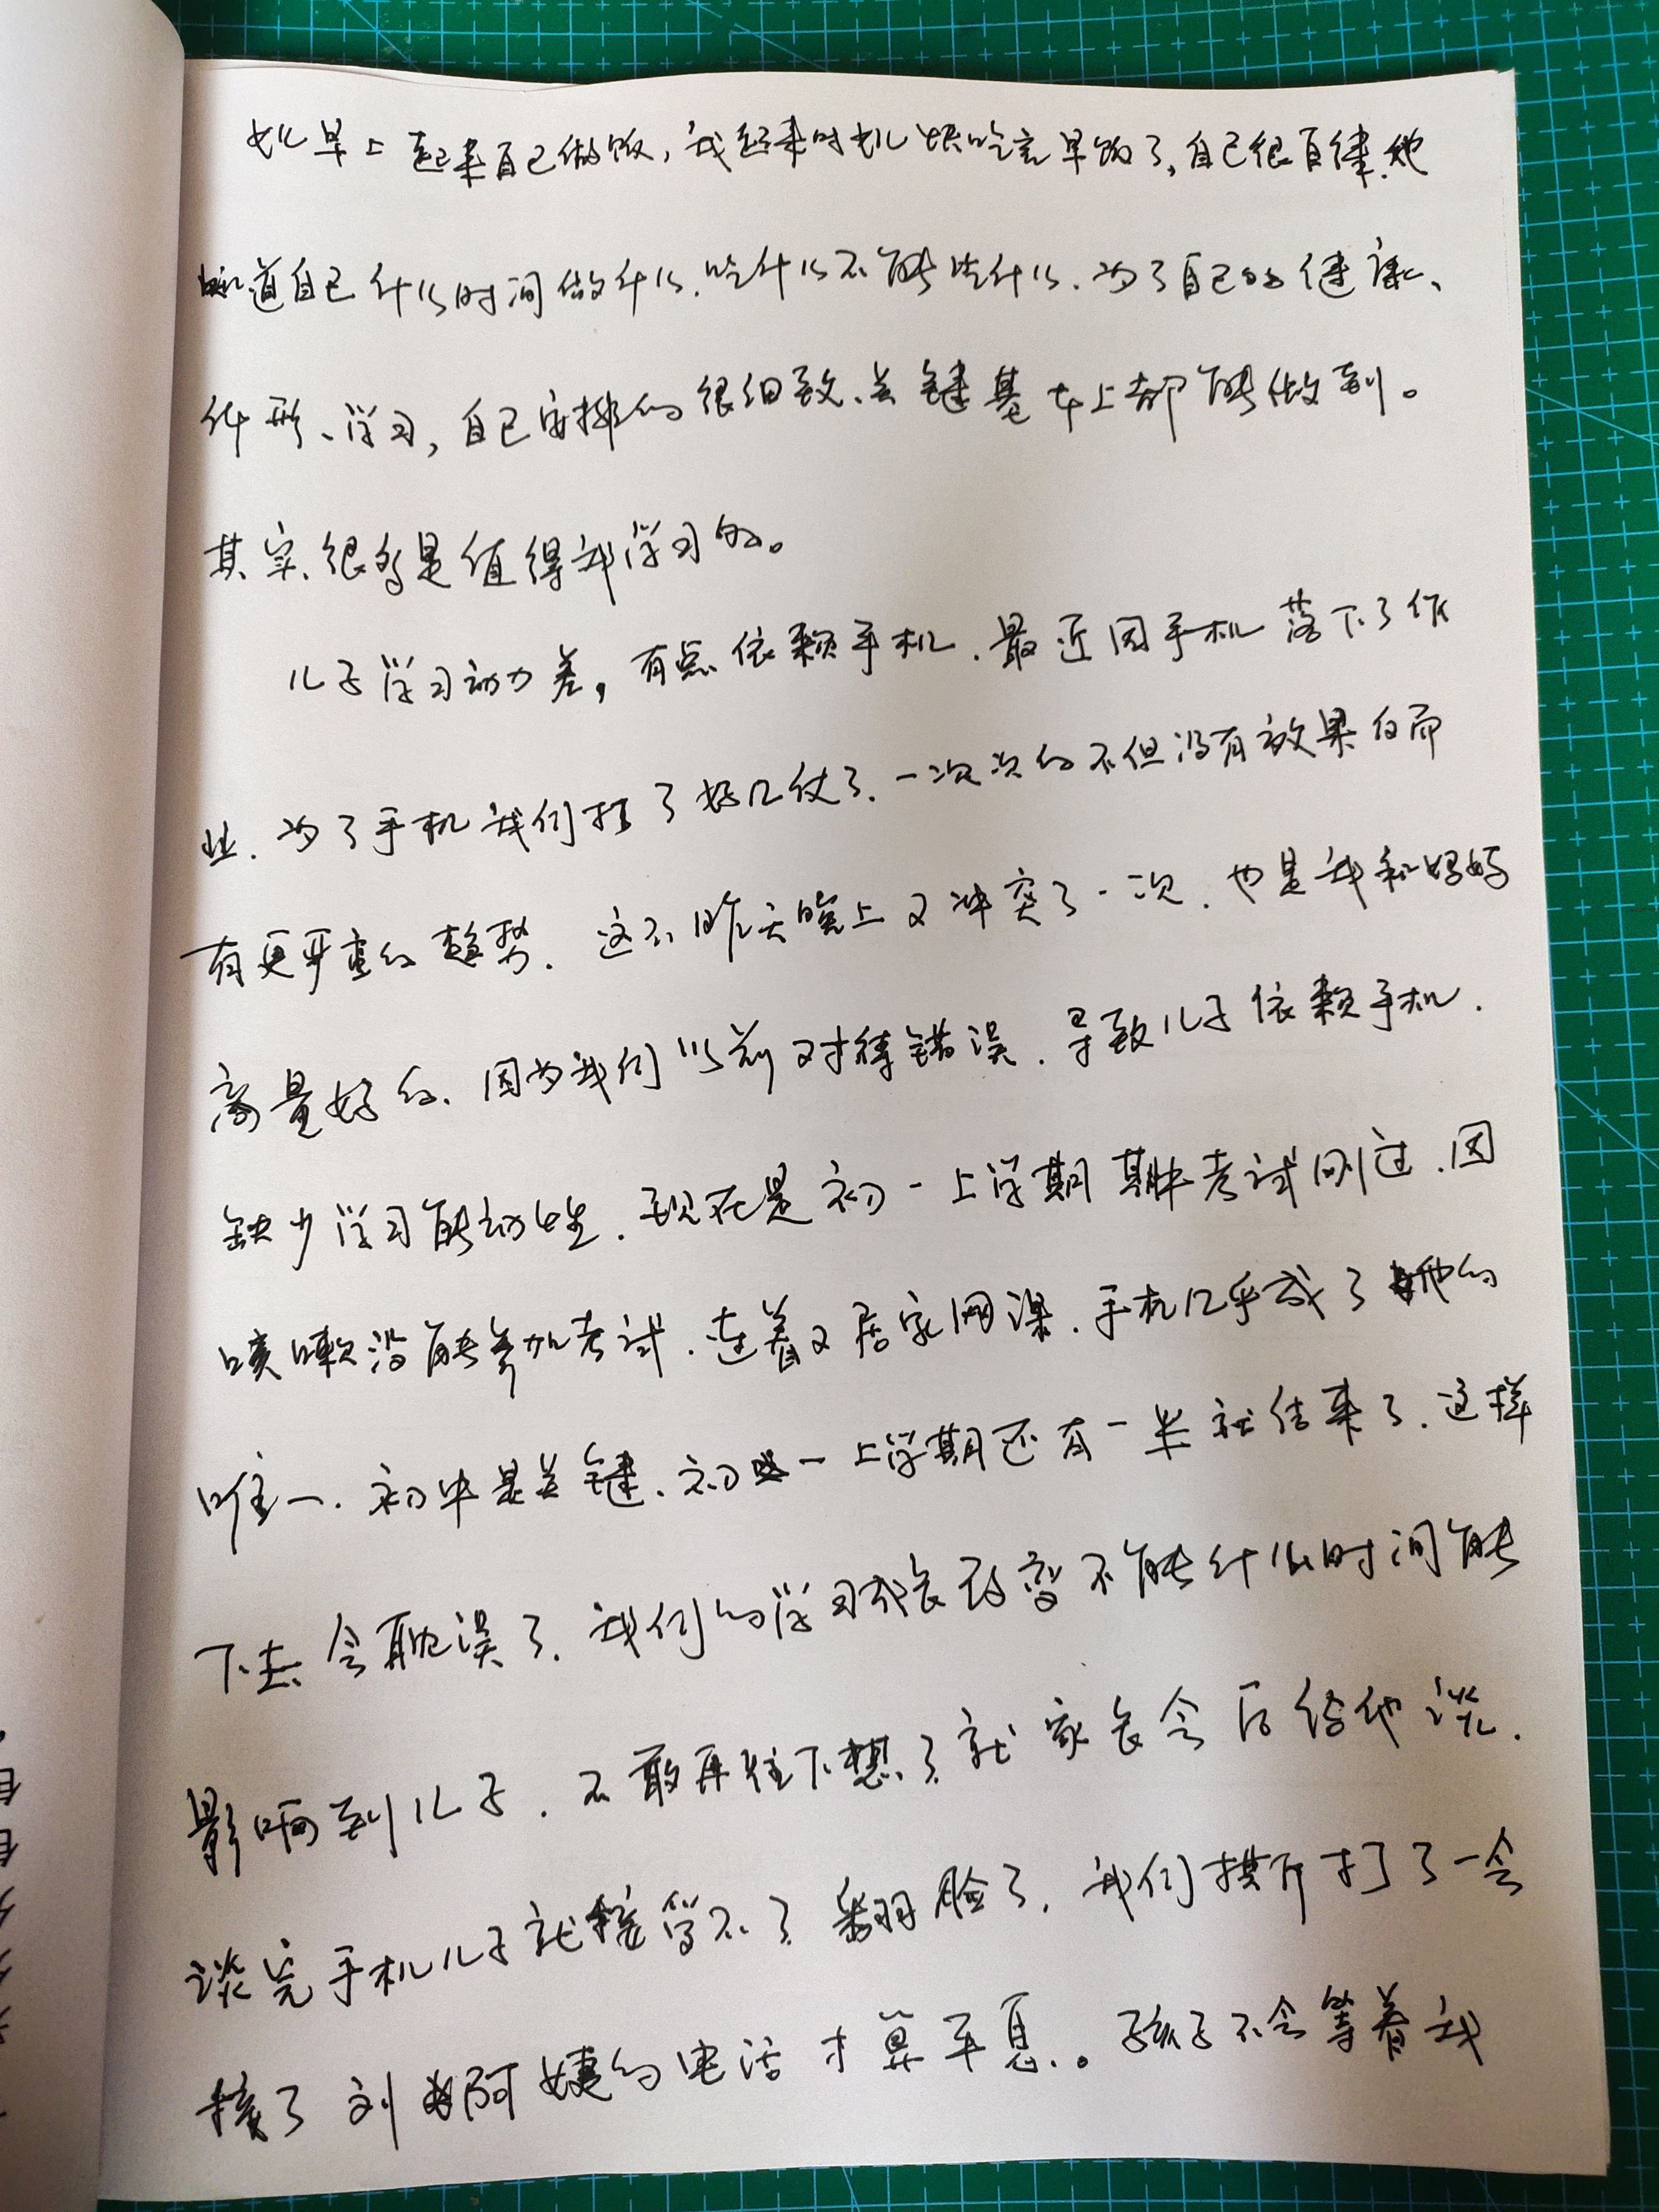 她早上起来自己做饭，我起来时她快吃完早饭了，自己很自律.她
知道自己什么时间做什么.吃什么不能吃什么.为了自己的健康、
体形、学习，自己安排的很细致、关键基本上都能做到。
其实、很多是值得我学习的。
儿子学习动力差，有点依赖手机.最近因手机落下了作
业.为了手机我们打了好几仗了.一次次的不但没有效果白而
有更严重的趋势.这不昨天晚上又冲突了一次.也是我和妈妈
商量好的、因为我们以前对待错误.导致儿子依赖手机.
缺少学习能动性.现在是初一上学期期中考试刚过.因
咳嗽没能参加考试.连着又居家网课.手机几乎成了他的
唯一.初中是关键、初一上学期还有一半就结束了.这样
下去会耽误了.我们的学习成长改变不能什么时间能
影响到儿子.不敢再往下想了.就家长会后给他谈.
谈完手机儿子就接受不了翻脸了.我们撕打了一会
接了刘阿婕的电话才算平息。孩子不会等着我